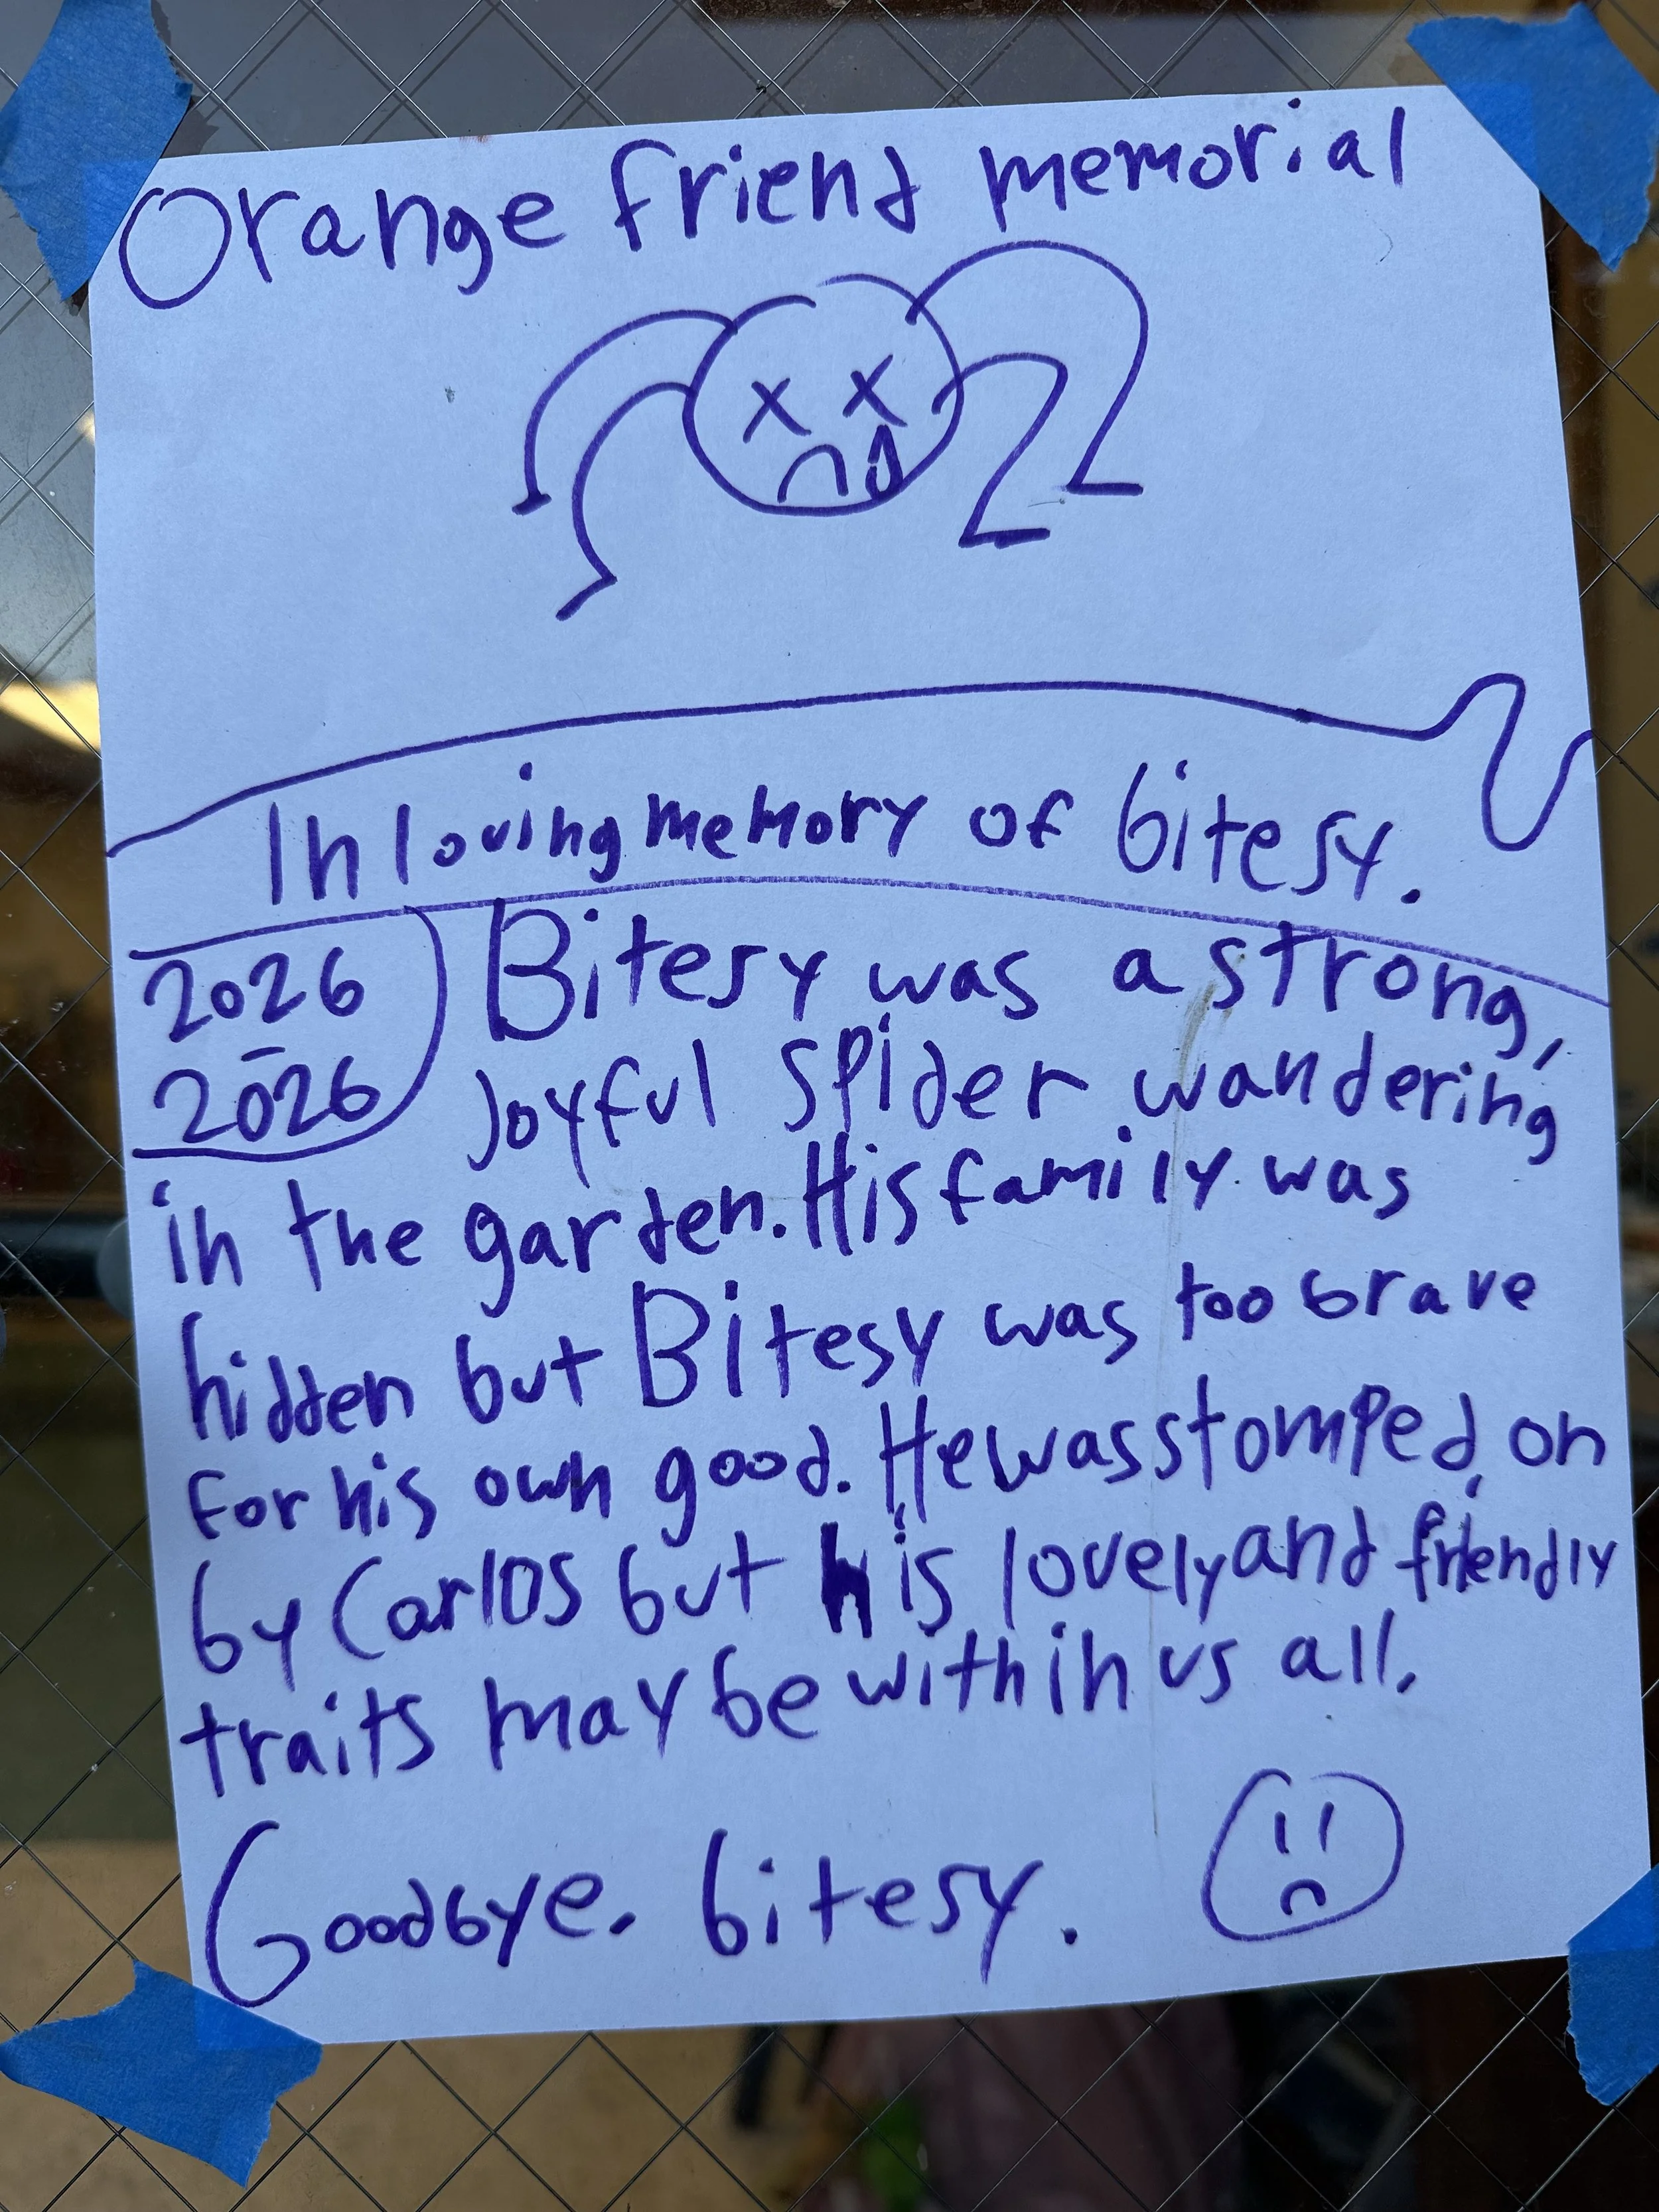 Orange friend memorial
In loving memory of bitesy.
2026
-
2026
Bitesy was a strong,
Joyful spider wandering
in the garden. His family was
hidden but Bitesy was too brave
for his own good. He was stomped on
by Carlos but his lovely and friendly
traits may be within us all.
Goodbye. bitesy.